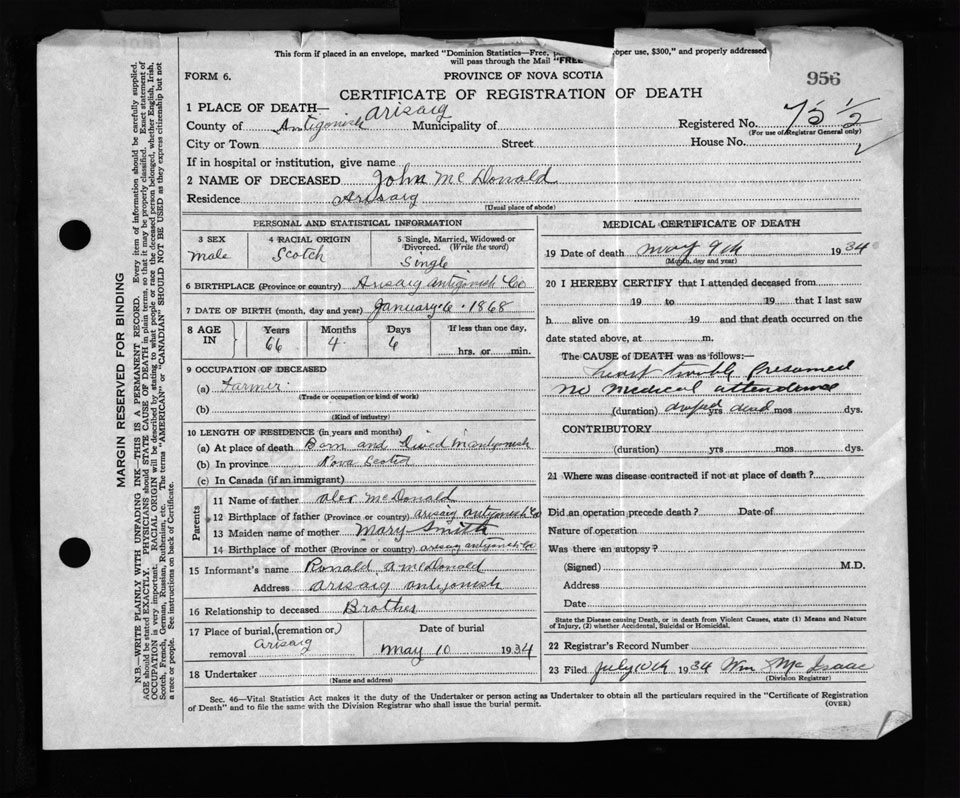 This form if placed in an envelope, marked "Dominion Statistics—Free, oper use, $300," and properly addressed
will pass through the Mail "FREE
FORM 6.
PROVINCE OF NOVA SCOTIA
956
CERTIFICATE OF REGISTRATION OF DEATH
1 PLACE OF DEATH—
County of Antigonish Arisaig Municipality of
Registered No. 75 1/2
(For use of Registrar General only)
City or Town Street House No.
If in hospital or institution, give name
2 NAME OF DECEASED John McDonald
Residence Arisaig
(Usual place of abode)
PERSONAL AND STATISTICAL INFORMATION
3 SEX
male
4 RACIAL ORIGIN
Scotch
5 Single, Married, Widowed or
Divorced. (Write the word)
Single
6 BIRTHPLACE (Province or country) Arisaig Antigonish Co
7 DATE OF BIRTH (month, day and year) January 6 1868
8 AGE
IN
Years
66
Months
4
Days
6
If less than one day,
hrs. or min.
9 OCCUPATION OF DECEASED
(a) Farmer
(Trade or occupation or kind of work)
(b)
(Kind of industry)
10 LENGTH OF RESIDENCE (in years and months)
(a) At place of death Born and Lived in Antigonish
(b) In province Nova Scotia
(c) In Canada (if an immigrant)
Parents
11 Name of father Alex McDonald
12 Birthplace of father (Province or country) arisaig antigonish Co
13 Maiden name of mother Mary Smith
14 Birthplace of mother (Province or country) arisaig antigonish Co
15 Informant's name Ronald A McDonald
Address arisaig antigonish
16 Relationship to deceased Brother
17 Place of burial, (cremation or)
removal arisaig
Date of burial
May 10 1934
18 Undertaker
(Name and address)
MEDICAL CERTIFICATE OF DEATH
19 Date of death may 9th 1934
(Month, day and year)
20 I HEREBY CERTIFY that I attended deceased from
19 to 19 that I last saw
h alive on 19 and that death occurred on the
date stated above, at m.
The CAUSE of DEATH was as follows:—
heart trouble Presumed
no medical attendence
(duration) droped yrs dead mos dys.
CONTRIBUTORY
(duration) yrs mos dys.
21 Where was disease contracted if not at place of death?
Did an operation precede death? Date of
Nature of operation
Was there an autopsy?
(Signed) M.D.
Address
Date
State the Disease causing Death, or in death from Violent Causes, state (1) Means and Nature
of Injury, (2) whether Accidental, Suicidal or Homicidal.
22 Registrar's Record Number
23 Filed July 10th 1934 Wm McIsaac
(Division Registrar)
Sec. 46—Vital Statistics Act makes it the duty of the Undertaker or person acting as Undertaker to obtain all the particulars required in the "Certificate of Registration
of Death" and to file the same with the Division Registrar who shall issue the burial permit.
(OVER)
MARGIN RESERVED FOR BINDING
N.B.—WRITE PLAINLY WITH UNFADING INK—THIS IS A PERMANENT RECORD. Every item of information should be carefully supplied.
AGE should be stated EXACTLY. PHYSICIANS should STATE CAUSE OF DEATH in plain terms, so that it may be properly classified. Exact statement of
OCCUPATION is very important. RACIAL ORIGIN will be described by stating to what people or race the deceased person belonged, whether English, Irish,
Scotch, French, German, Russian, Ruthenian, etc. The terms "AMERICAN" or "CANADIAN" SHOULD NOT BE USED as they express citizenship but not
a race or people. See instructions on back of Certificate.